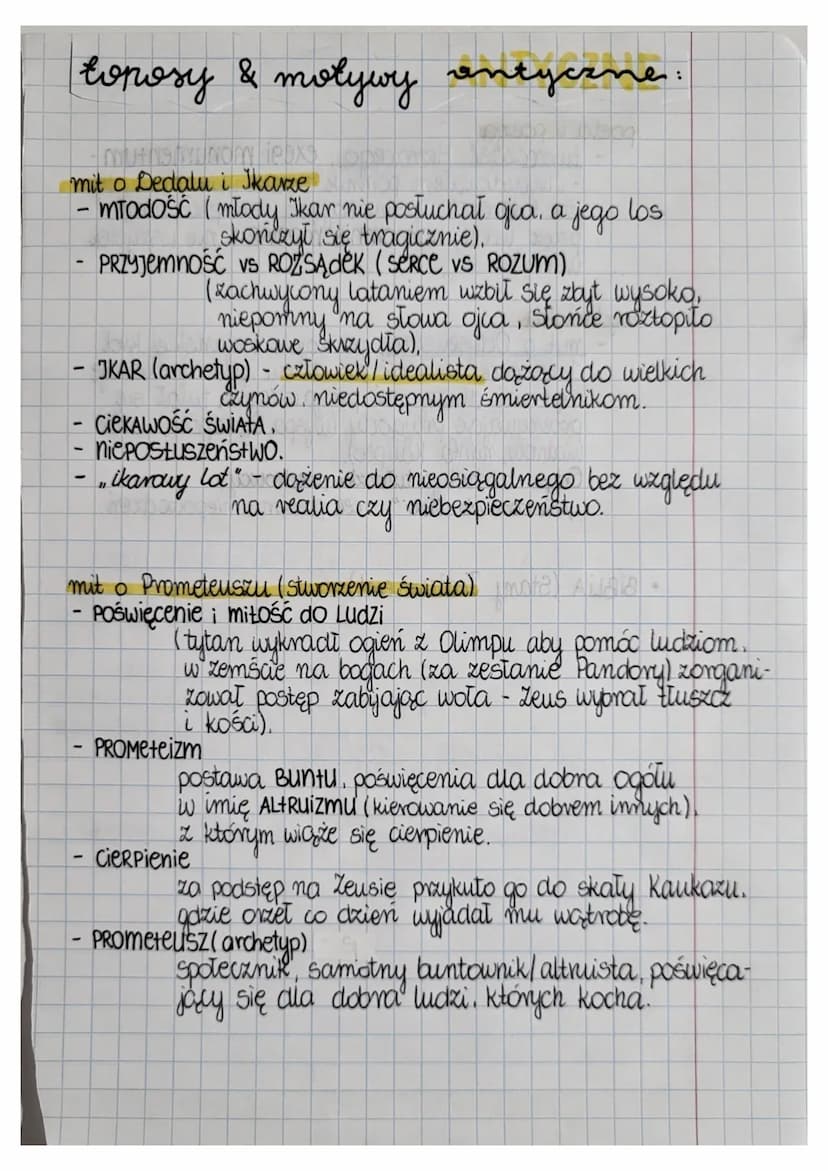 toposy & motywy antyczne:
ANTYCZNE
mit o Dedalu i Ikarze
- MŁODOŚĆ (młody Ikar nie posłuchał ojca, a jego los
skończył się tragicznie),
- PRZYJEMNOŚĆ vs ROZSĄDEK (SERCE vs ROZUM)
(zachwycony lataniem wzbił się zbyt wysoko,
niepomny na słowa ojca, słońce roztopiło
woskowe skrzydła),
- IKAR (archetyp) - człowiek/idealista dążący do wielkich
czynów, niedostępnym śmiertelnikom.
- CIEKAWOŚĆ ŚWIATA,
- NIEPOSŁUSZEŃSTWO.
- „ikarowy lot" - dążenie do nieosiągalnego bez względu
na realia czy niebezpieczeństwo.
mit o Prometeuszu (stworzenie świata)
- POŚWIĘCENIE i MIŁOŚĆ DO LUDZI
(tytan wykradł ogień z Olimpu aby pomóc ludziom,
w zemście na bogach (za zesłanie Pandory) zorgani-
zował postęp zabijając woła - Zeus wybrał tłuszcz
i kości),
- PROMETEIZM
postawa BUNTU, poświęcenia dla dobra ogółu
w imię ALTRUIZMU (kierowanie się dobrem innych),
z którym wiąże się cierpienie.
- CIERPIENIE
za podstęp na Zeusie przykuto go do skały Kaukazu,
gdzie orzeł co dzień wyjadał mu wątrobę.
- PROMETEUSZ (archetyp)
społecznik, samotny buntownik/altruista, poświęca-
jący się dla dobra ludzi, których kocha.